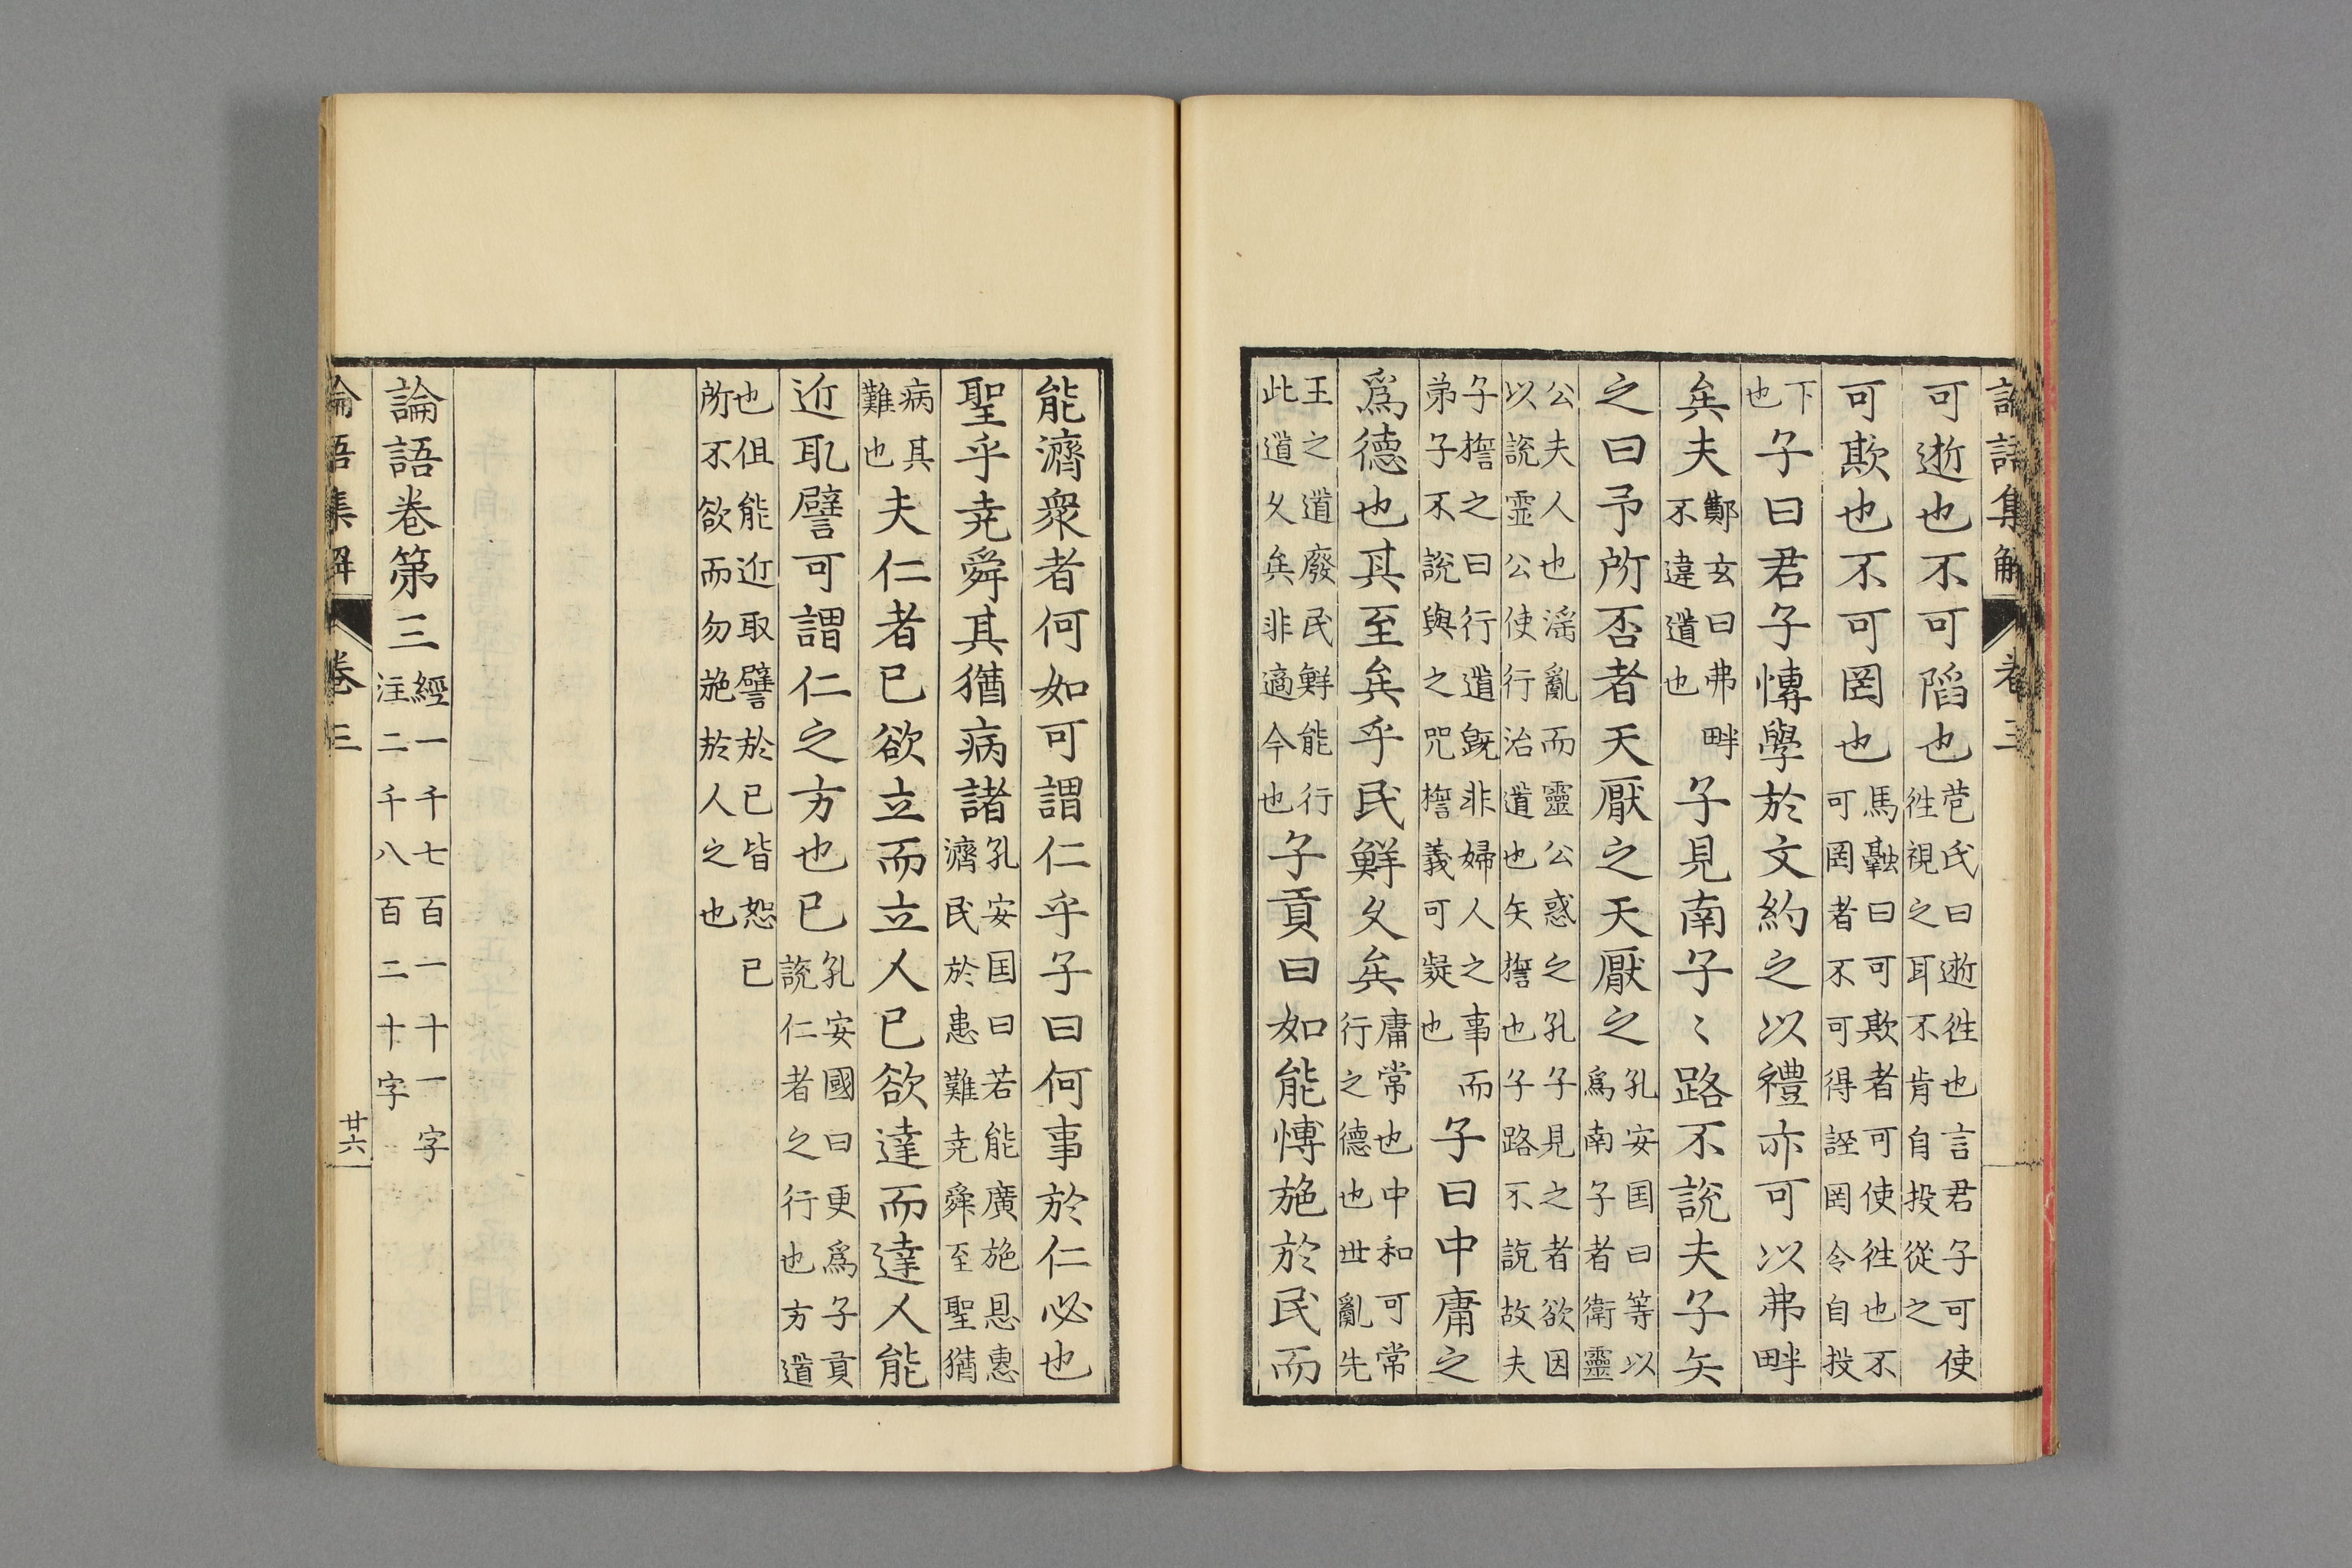 論語集解 卷三
可逝也不可䧟也苞氏曰逝徃也言君子可使徃視之耳不肯自投從之
可欺也不可罔也馬融曰可欺者可使徃也不可罔者不可得誣罔令自投
下也子曰君子愽學於文約之以禮亦可以弗畔
矣夫鄭玄曰弗畔不違道也子見南子〻路不說夫子矢
之曰予所否者天厭之天厭之孔安国曰等以爲南子者衛靈
公夫人也滛亂而靈公惑之孔子見之者欲因以說靈公使行治道也矢擔也子路不說故夫
子擔之曰行道旣非婦人之事而弟子不說與之咒擔義可疑也子曰中庸之
爲德也其至矣乎民鮮久矣庸常也中和可常行之德也世亂先
王之道廢民鮮能行此道久矣非適今也子貢曰如能愽施於民而
能濟衆者何如可謂仁乎子曰何事於仁必也
聖乎尭舜其猶病諸孔安国曰若能廣施恩惠濟民於患難尭舜至聖猶
病其難也夫仁者己欲立而立人己欲達而達人能
近取譬可謂仁之方也已孔安國曰更爲子貢說仁者之行也方道
也但能近取譬於已皆恕已所不欲而勿施於人之也
論語卷第三經一千七百一十一字注二千八百二十字
論語集解 卷三 廿六